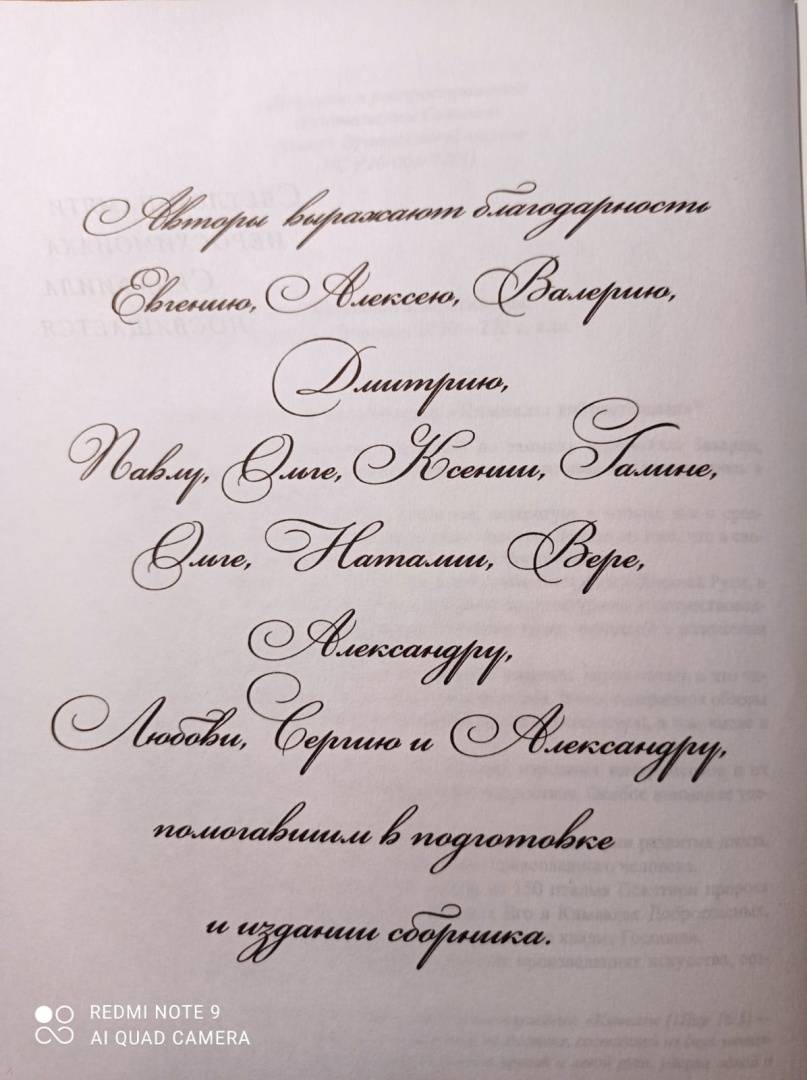 Авторы выражают благодарность
Евгению, Алексею, Валерию,
Дмитрию,
Павлу, Ольге, Ксении, Галине,
Ольге, Наталии, Вере,
Александру,
Любови, Сергию и Александру,
помогавшим в подготовке
и издании сборника.
REDMI NOTE 9
AI QUAD CAMERA